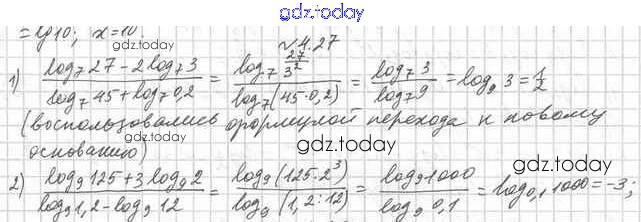 gdz.today
= lg10; x=10.
gdz.today
№4.27
1) (log₇27 - 2log₇3)/(log₇45 + log₇0,2) = (log₇ 27/3²)/(log₇(45·0,2)) = (log₇3)/(log₇9) = log₉3 = 1/2
(воспользовались формулой перехода к новому
gdz.today
основанию)
gdz.today
2) (log₉125 + 3log₉2)/(log₉1,2 - log₉12) = (log₉(125·2³))/(log₉(1,2:12)) = (log₉1000)/(log₉0,1) = log₀,₁1000 = -3;
gdz.today